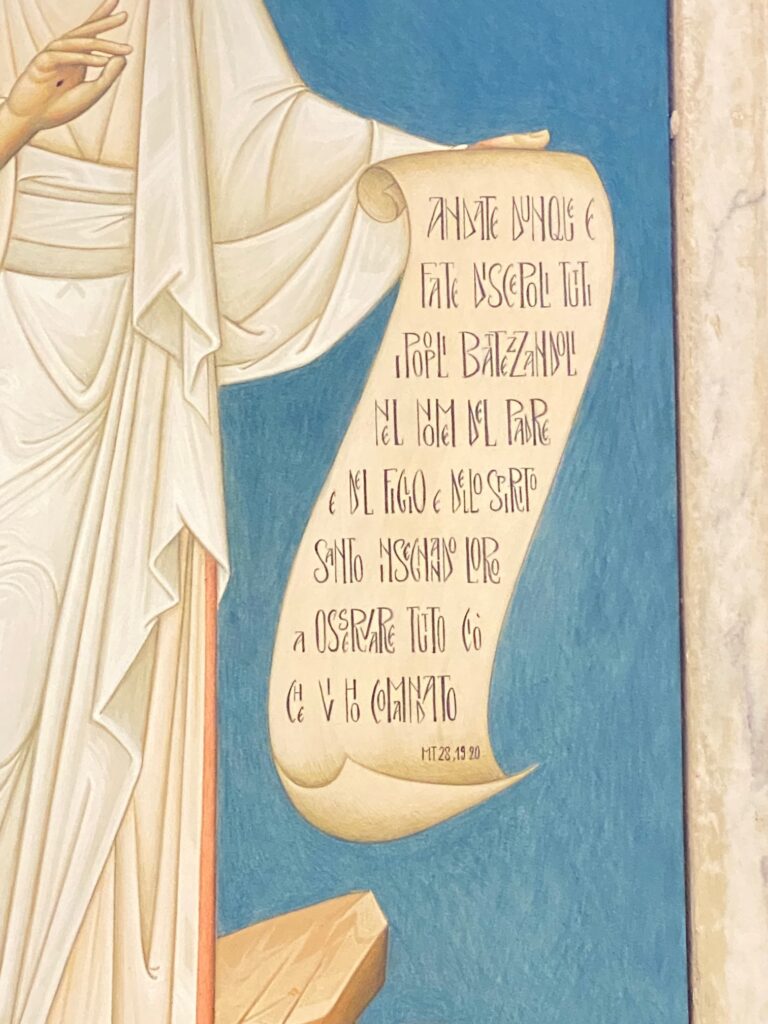 ANDATE DUNQUE E
FATE DISCEPOLI TUTTI
I POPOLI BATTEZZANDOLI
NEL NOME DEL PADRE
E DEL FIGLIO E DELLO SPIRITO
SANTO INSEGNANDO LORO
A OSSERVARE TUTTO CIÒ
CHE VI HO COMANDATO
MT 28,19 20